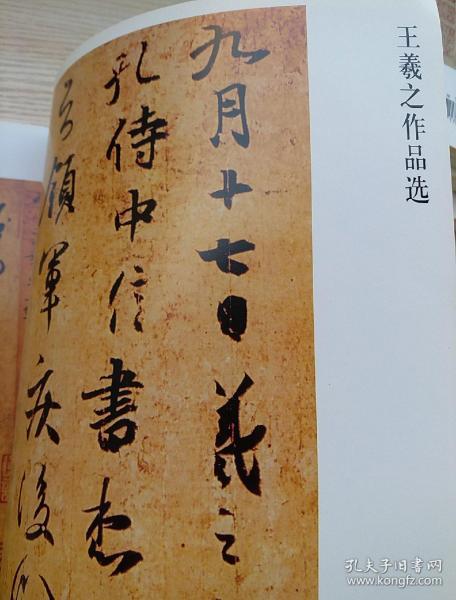 王羲之作品选
九月十七日羲之
孔侍中信書想
知領軍疾後
孔夫子旧书网
www.kongfz.com